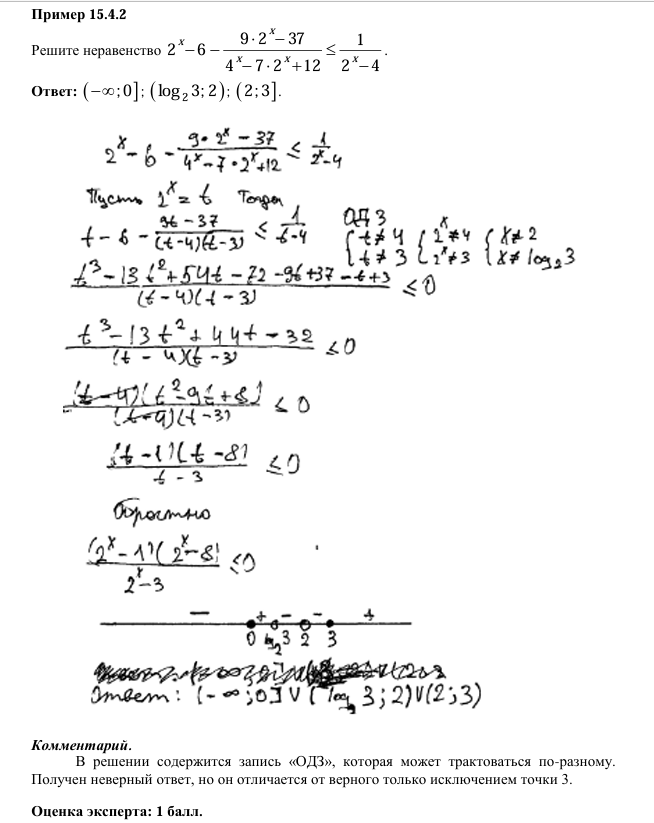 Пример 15.4.2
Решите неравенство 2^x − 6 − (9·2^x − 37)/(4^x − 7·2^x + 12) ≤ 1/(2^x − 4).
Ответ: (−∞;0]; (log₂3;2); (2;3].
2^x − 6 − (9·2^x − 37)/(4^x − 7·2^x + 12) ≤ 1/(2^x − 4)
Пусть 2^x = t Тогда
t − 6 − (9t − 37)/((t−4)(t−3)) ≤ 1/(t−4) ОДЗ { t ≠ 4 t ≠ 3 { 2^x ≠ 4 2^x ≠ 3 { x ≠ 2 x ≠ log₂3
(t³ − 13t² + 54t − 72 − 9t + 37 − t + 3)/((t−4)(t−3)) ≤ 0
(t³ − 13t² + 44t − 32)/((t−4)(t−3)) ≤ 0
((t−4)(t² − 9t + 8))/((t−4)(t−3)) ≤ 0
((t−1)(t−8))/(t−3) ≤ 0
Обратно
((2^x − 1)(2^x − 8))/(2^x − 3) ≤ 0
− + − − +
0 log₂3 2 3
Ответ: (−∞;0] ∪ (log₂3;2) ∪ (2;3)
Комментарий.
В решении содержится запись «ОДЗ», которая может трактоваться по-разному.
Получен неверный ответ, но он отличается от верного только исключением точки 3.
Оценка эксперта: 1 балл.